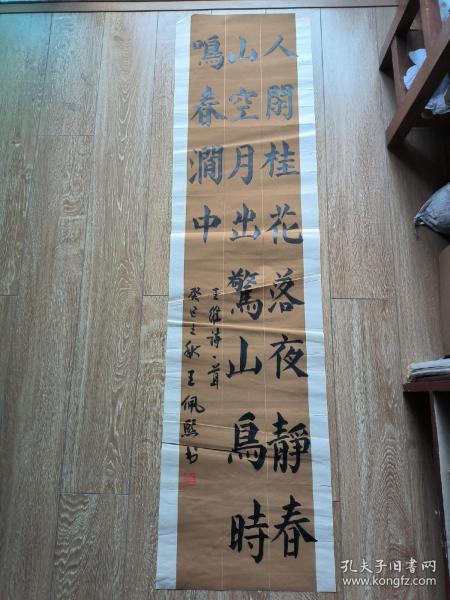 人閒桂花落夜靜春
山空月出驚山鳥時
鳴春澗中
王維詩一首
癸巳之秋王佩熙书
孔夫子旧书网
www.kongfz.com